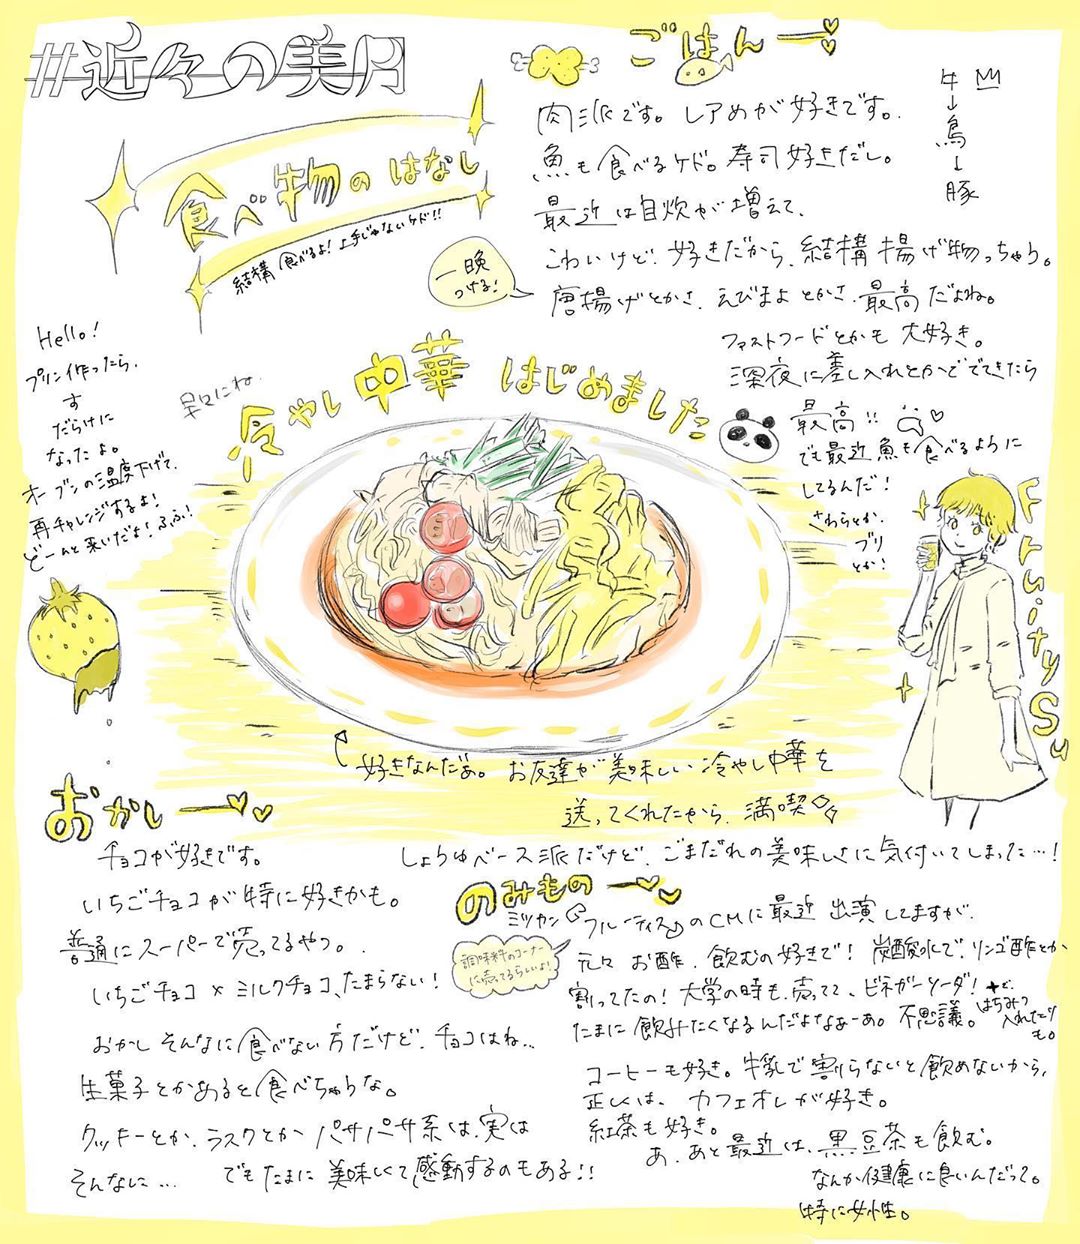 #近々の美月
食べ物のはなし
結構食べるよ!上手じゃないケド!!
ごはんー
肉派です。レアめが好きです。
魚も食べるケド。寿司好きだし。
最近は自炊が増えて、
こわいけど、好きだから、結構揚げ物っちゃう。
唐揚げとかさ、えびまよとかさ、最高だよね。
牛
↓
鳥
↓
豚
一晩
つける!
ファストフードとかも大好き。
深夜に差し入れとかででてきたら
最高!!
でも最近魚も食べるように
してるんだ!
さわらとか、
ブリ
とか!
Hello!
プリン作ったら、
す
だらけに
なったよ。
オーブンの温度下げて、
再チャレンジするよ!
どーんと来いだよ!ふふ!
早々にね。
冷やし中華はじめました
Fruity Su
好きなんだあ。お友達が美味しい冷やし中華を
送ってくれたから、満喫
しょうゆベース派だけど、ごまだれの美味しさに気付いてしまった…!
おかしー
チョコが好きです。
いちごチョコが特に好きかも。
普通にスーパーで売ってるやつ。
いちごチョコ×ミルクチョコ、たまらない!
おかしそんなに食べない方だけど、チョコはね…
生菓子とかあると食べちゃうな。
クッキーとか、ラスクとかパサパサ系は、実は
そんなに… でもたまに美味しくて感動するのもある!!
のみものー
ミツカン『フルーティス』のCMに最近出演してますが、
調味料のコーナー
に売ってるらしいよ!
元々お酢、飲むの好きで!炭酸水で、リンゴ酢とか
割ってたの!大学の時も、売ってて、ビネガーソーダ!
たまに飲みたくなるんだよなあーあ。不思議。
はちみつ
入れたり
も。
コーヒーも好き。牛乳で割らないと飲めないから、
正しくは、カフェオレが好き。
紅茶も好き。
あ、あと最近は、黒豆茶も飲む。
なんか健康に良いんだって。
特に女性。